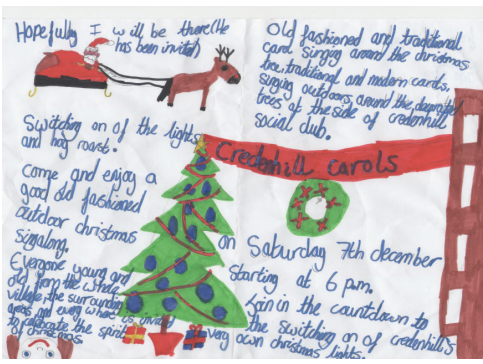 Hopefully I will be there (He
has been invited)
Old fashioned and traditional
carol singing around the christmas
tree, traditional and modern carols,
singing outdoors, around the decorated
trees at the side of credenhill
social club.
Switching on of the lights
and hog roast.
Credenhill carols
Come and enjoy a
good old fashioned
outdoor christmas
singalong.
Everyone young and
old from the whole
village, the surrounding
areas and every where is invited
to celebrate the spirit
of christmas.
on Saturday 7th december
starting at 6 p.m.
Join in the countdown to
the switching on of credenhill's
very own christmas lights.